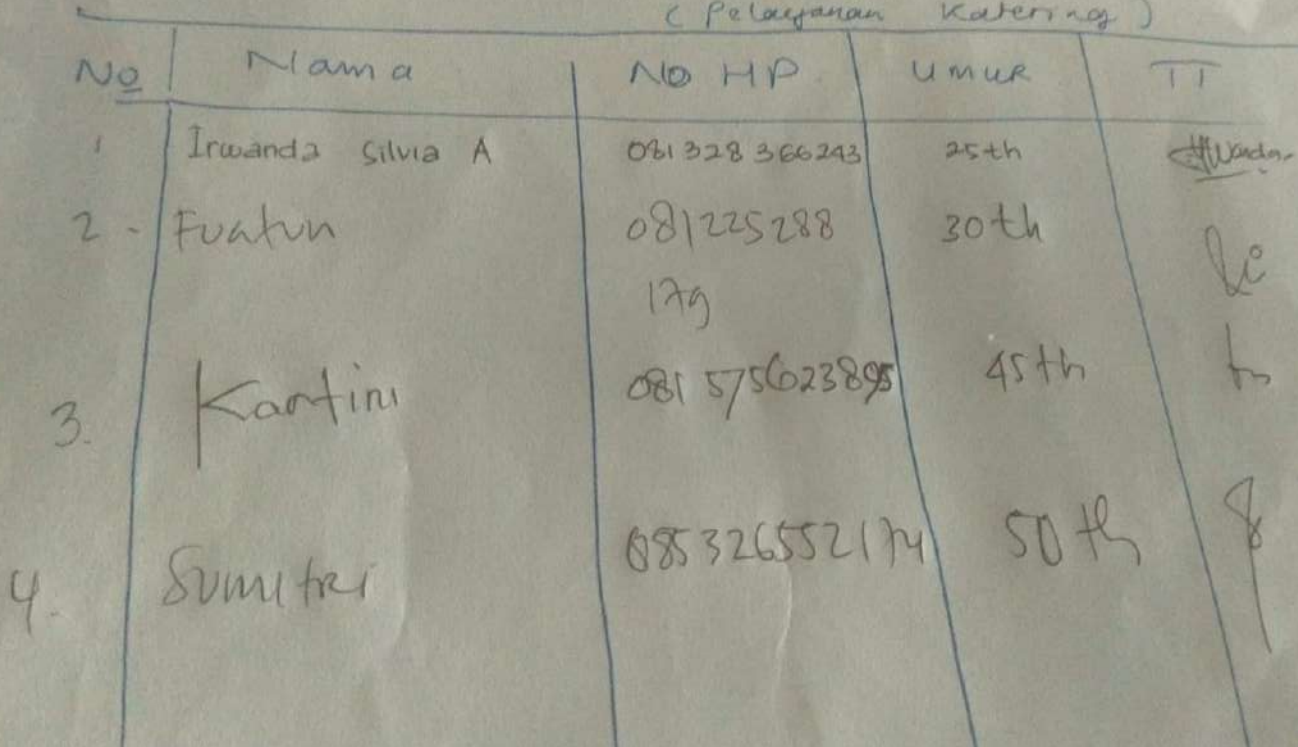 (Pelayanan Katering)
No Nama No HP Umur TT
1 Irwanda Silvia A 081 328 366243 25th
2 - Fuatun 081225288 30th
179
3. Kartini 081 575623895 45th
4. Sumitri 085326552174 50th